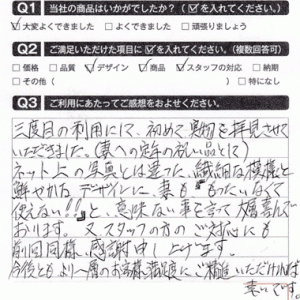 Q1 当社の商品はいかがでしたか？（☑を入れてください。）
☑大変よくできました □よくできました □頑張りましょう
Q2 ご満足いただけた項目に☑を入れてください。（複数回答可）
□価格 □品質 ☑デザイン ☑商品 ☑スタッフの対応 □納期
□その他（ ） □特になし
Q3 ご利用にあたってご感想をおよせください。
三度目の利用にて、初めて実物を拝見させて
いただきました。（妻への定年の祝い品として）
ネット上の写真とは違った、繊細な模様と
鮮やかなデザインに、妻も『もったいなくて
使えない!!』と、意味ない事を言って大喜んで
おります。又、スタッフの方のご対応にも
前回同様、感謝申し上げます。
今後とも より一層のお客様満足度にご精進いただければ
幸いです。